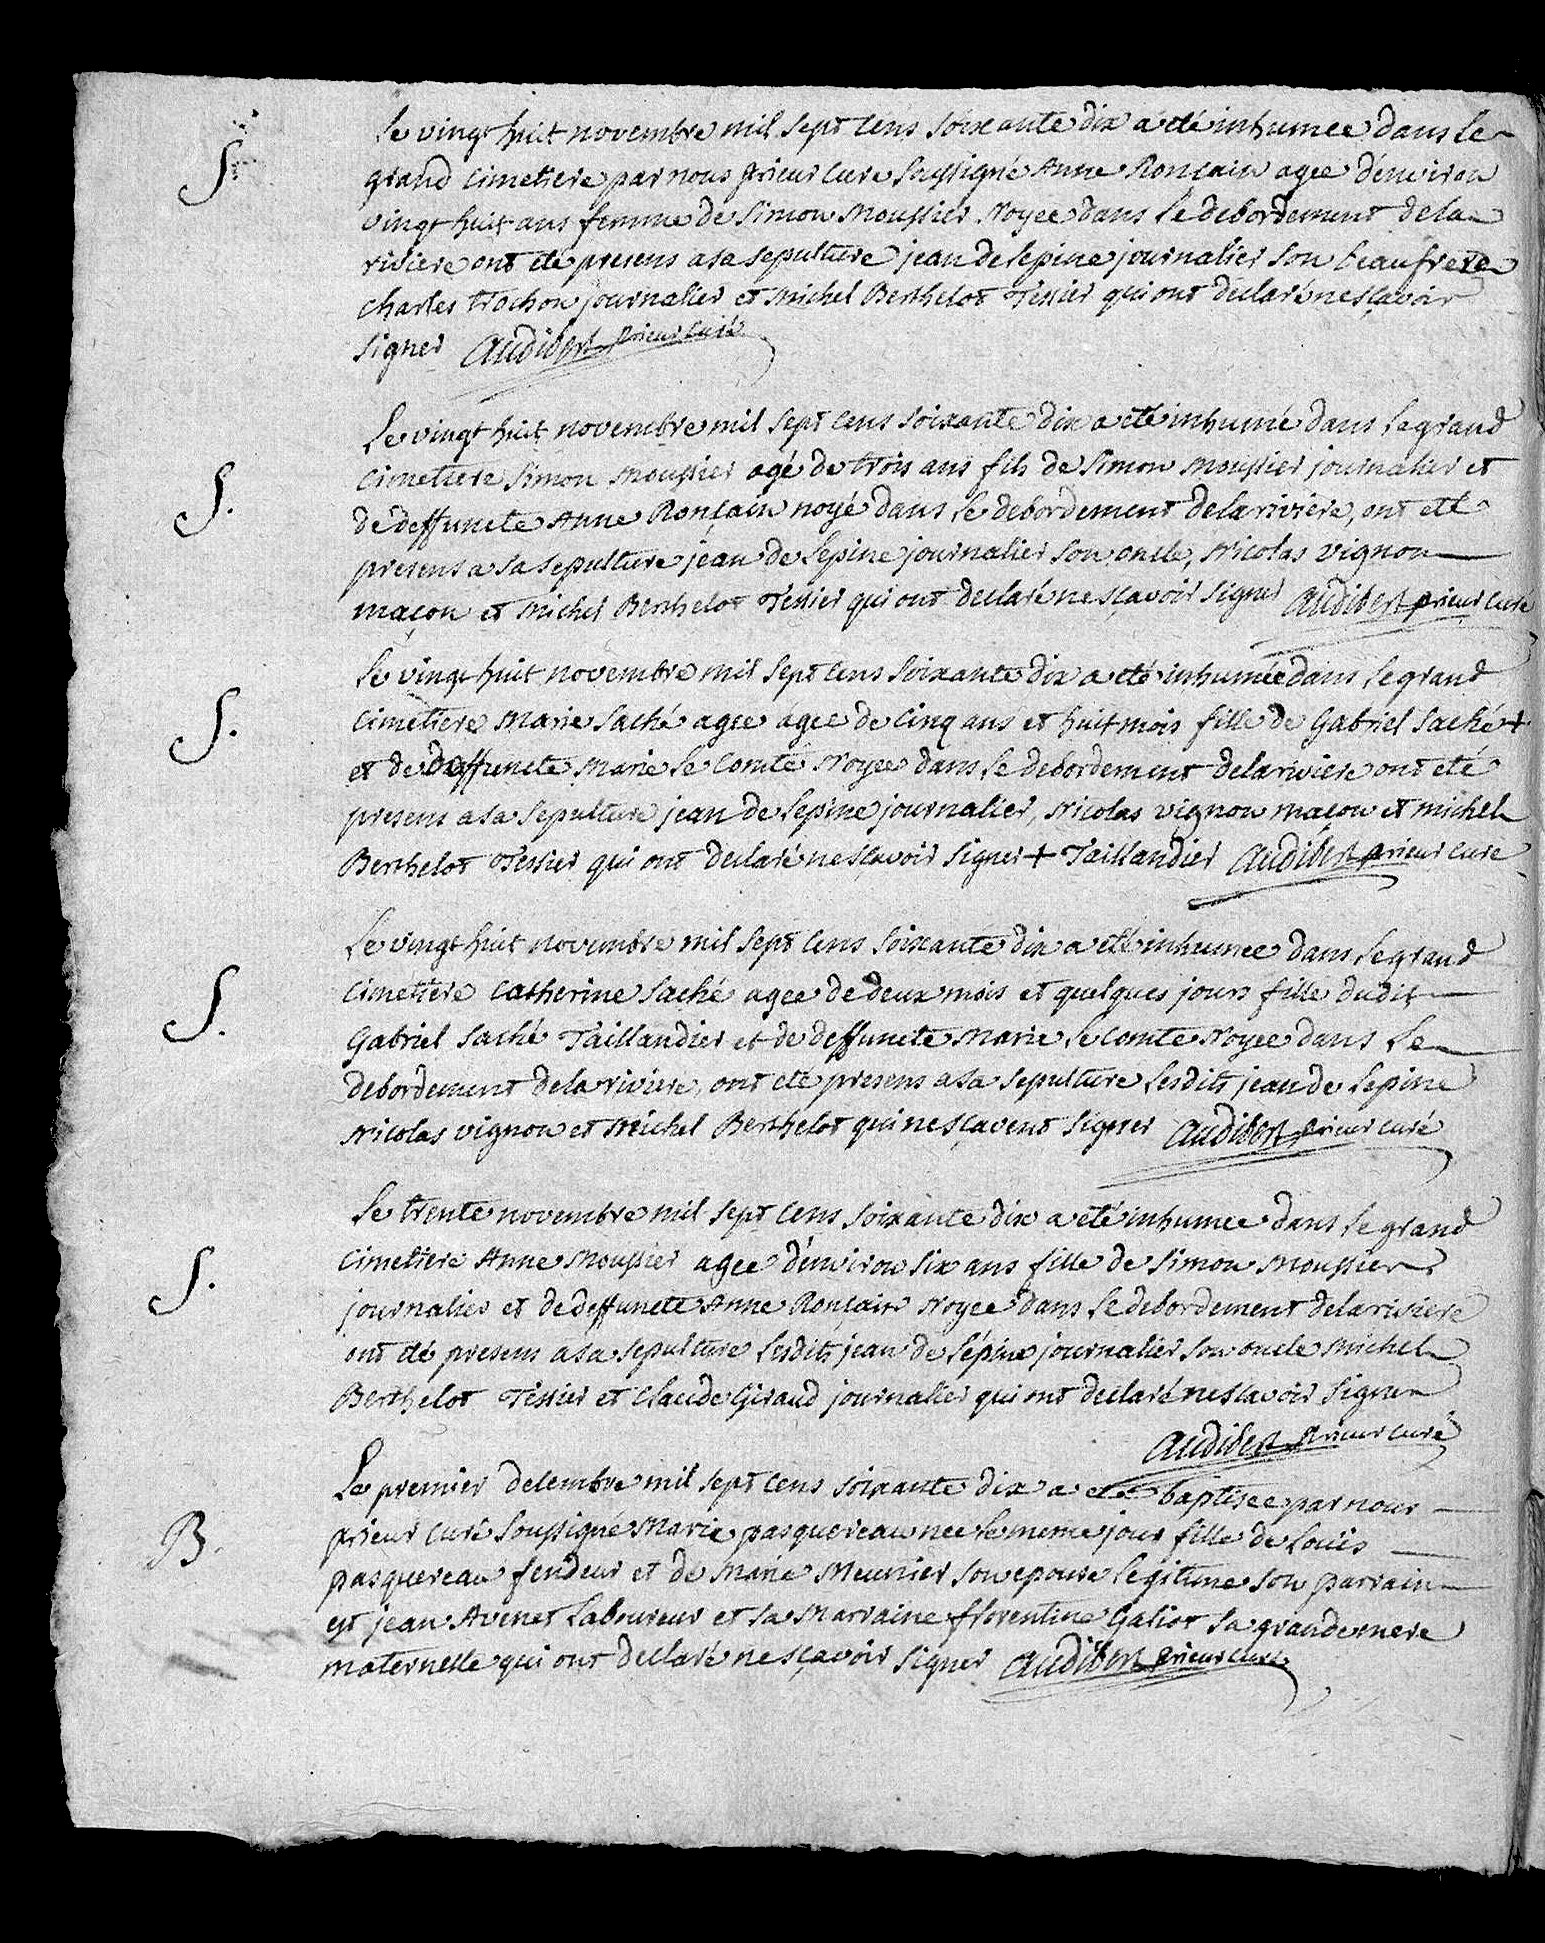 S. Le vingt huit novembre mil sept cens soixante dix a eté inhumée dans le
grand cimetiere par nous prieur curé soussigné Anne Ronçain agée d'environ
vingt huit ans femme de Simon Moussier Noyée dans le debordement de la
riviere ont eté presens a sa sepulture jean de lepine journalier son beaufrere
charles trochon journalier et Michel Berthelot Tessier qui ont declaré ne sçavoir
signer Audibert prieur curé
S. Le vingt huit novembre mil sept cens soixante dix a eté inhumé dans le grand
cimetiere Simon Moussier agé de trois ans fils de Simon Moussier journalier et
de deffuncte Anne Ronçain noyé dans le debordement de la riviere, ont eté
presens a sa sepulture jean de lepine journalier son oncle, Nicolas vignon
maçon et Michel Berthelot Tessier qui ont declaré ne sçavoir signer Audibert prieur curé
S. Le vingt huit novembre mil sept cens soixante dix a eté inhumée dans le grand
cimetiere Marie Saché agee agee de cinq ans et huit mois fille de Gabriel Saché +
et de deffuncte Marie le Comte Noyee dans le debordement de la riviere ont eté
presens a sa sepulture jean de lepine journalier, Nicolas vignon maçon et michel
Berthelot Tessier qui ont declaré ne sçavoir signer + Taillandier Audibert prieur curé
S. Le vingt huit novembre mil sept cens soixante dix a eté inhumee dans le grand
cimetiere Catherine Saché agee de deux mois et quelques jours fille dudit
Gabriel Saché Taillandier et de deffuncte Marie le Comte Noyee dans le
debordement de la riviere, ont eté presens a sa sepulture lesdits jean de lepine
Nicolas vignon et Michel Berthelot qui ne sçavent signer Audibert prieur curé
S. Le trente novembre mil sept cens soixante dix a eté inhumee dans le grand
cimetiere Anne Moussier agee d'environ six ans fille de Simon Moussier
journalier et de deffuncte Anne Ronçain Noyee dans le debordement de la riviere
ont eté presens a sa sepulture lesdits jean de lépine journalier son oncle Michel
Berthelot Tessier et Claude Giraud journalier qui ont declaré ne scavoir signer
Audibert prieur curé
B. Le premier decembre mil sept cens soixante dix a eté baptisee par nous
prieur curé soussigné Marie pasquereau nee le meme jour fille de louis
pasquereau fendeur et de Marie Meunier son epouse legitime son parrain
est jean Avenet laboureur et sa Marraine fflorentine Galiot sa grandemere
maternelle qui ont declaré ne sçavoir signer Audibert prieur curé